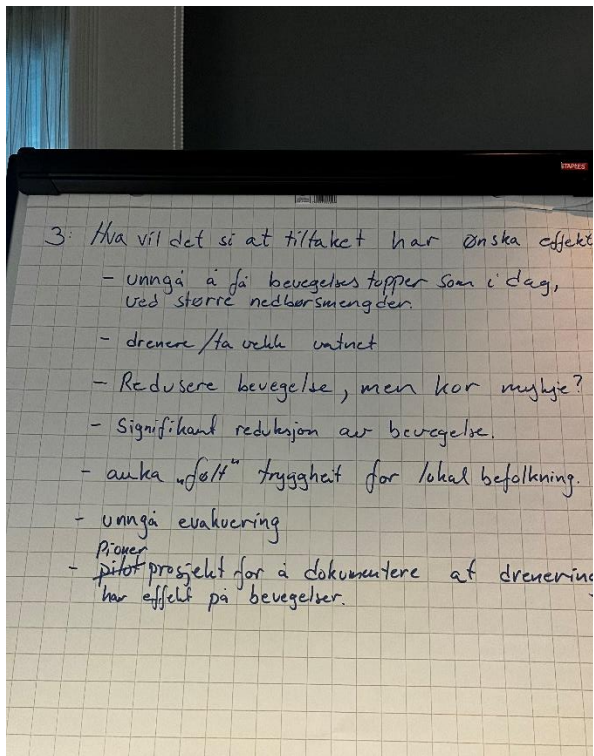 STAPLES
3: Hva vil det si at tiltaket har ønska effekt
- unngå å få bevegelses topper som i dag,
ved større nedbørsmengder.
- drenere / ta vekk vatnet
- Redusere bevegelse, men kor mykje?
- Signifikant reduksjon av bevegelse.
- auka "følt" tryggheit for lokal befolkning.
- unngå evakuering
Pioner
- pilot prosjekt for å dokumentere at drenering
har effekt på bevegelser.